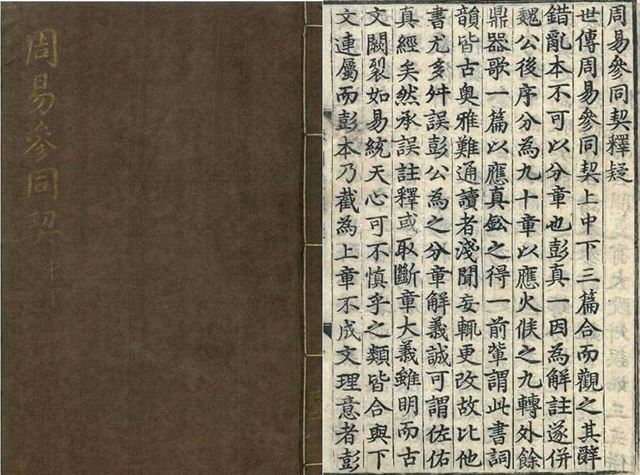 周易參同契釋疑
世傳周易參同契上中下三篇合而觀之其辭
錯亂本不可以分章也彭真一因為解註遂併
魏公後序分為九十章以應火候之九轉外餘
鼎器歌一篇以應真鈆之得一前軰謂此書詞
韻皆古奥雅難通讀者淺聞妄輒更改故比他
書尤多舛誤彭公為之分章解義誠可謂佐佑
真經矣然承誤註釋或取斷章大義雖明而古
文闕裂如易統天心可不慎乎之類皆合與下
文連屬而彭本乃截為上章不成文理意者彭
周易參同契